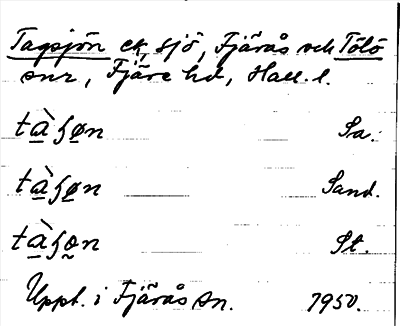 Tagsjön ek, sjö, Fjärås och Tölö
snr, Fjäre hd, Hall. l.
tà̱ʃø̱n Sa.
tà̱ʃø̱n Sand.
tà̱ʃo̰n St.
Uppt. i Fjärås sn. 1950.